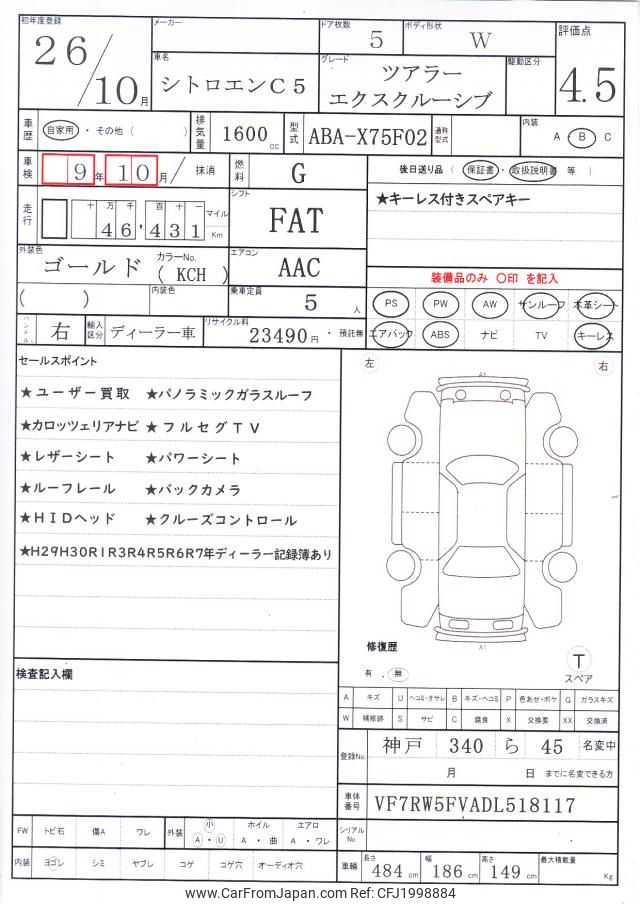 初年度登録 26/10月
メーカー
ドア枚数 5
ボディ形状 W
評価点 4.5
車名 シトロエンC5
グレード ツアラー
エクスクルーシブ
駆動区分
車歴 自家用 ・ その他 ( )
排気量 1600 cc
型式 ABA-X75F02
通称型式
内装 A B C
車検 9年 10月 / 抹消
燃料 G
後日送り品 ( 保証書 ・ 取扱説明書 等 )
走行 十万千百十一
46,431 マイル Km
シフト FAT
★キーレス付きスペアキー
外装色 ゴールド
カラーNo. ( KCH )
エアコン AAC
装備品のみ 〇印 を記入
( )
内装色
乗車定員 5 人
PS PW AW サンルーフ 本革シート
ハンドル 右
輸入区分 ディーラー車
リサイクル料 23490円 ・ 預託無
エアバック ABS ナビ TV キーレス
セールスポイント
★ユーザー買取 ★パノラミックガラスルーフ
★カロッツェリアナビ ★フルセグTV
★レザーシート ★パワーシート
★ルーフレール ★バックカメラ
★HIDヘッド ★クルーズコントロール
★H29H30R1R3R4R5R6R7年ディーラー記録簿あり
左 右
A1
A1
修復歴
有 . 無
T
スペア
検査記入欄
A キズ U ヘコミ・オサレ B キズ・ヘコミ P 色あせ・ボケ G ガラスキズ
W 補修跡 S サビ C 腐食 X 交換要 XX 交換済
登録No. 神戸 340 ら 45 名変中
月 日 までに名変できる方
車体番号 VF7RW5FVADL518117
シリアルNo.
FW トビ石 傷A ワレ
外装 小 A ・ U
ホイル A ・ 曲
エアロ A ・ ワレ
内装 ヨゴレ シミ ヤブレ コゲ コゲ穴 オーディオ穴
車輛 長さ 484 cm 幅 186 cm 高さ 149 cm 最大積載量 Kg
www.CarFromJapan.com Ref: CFJ1998884